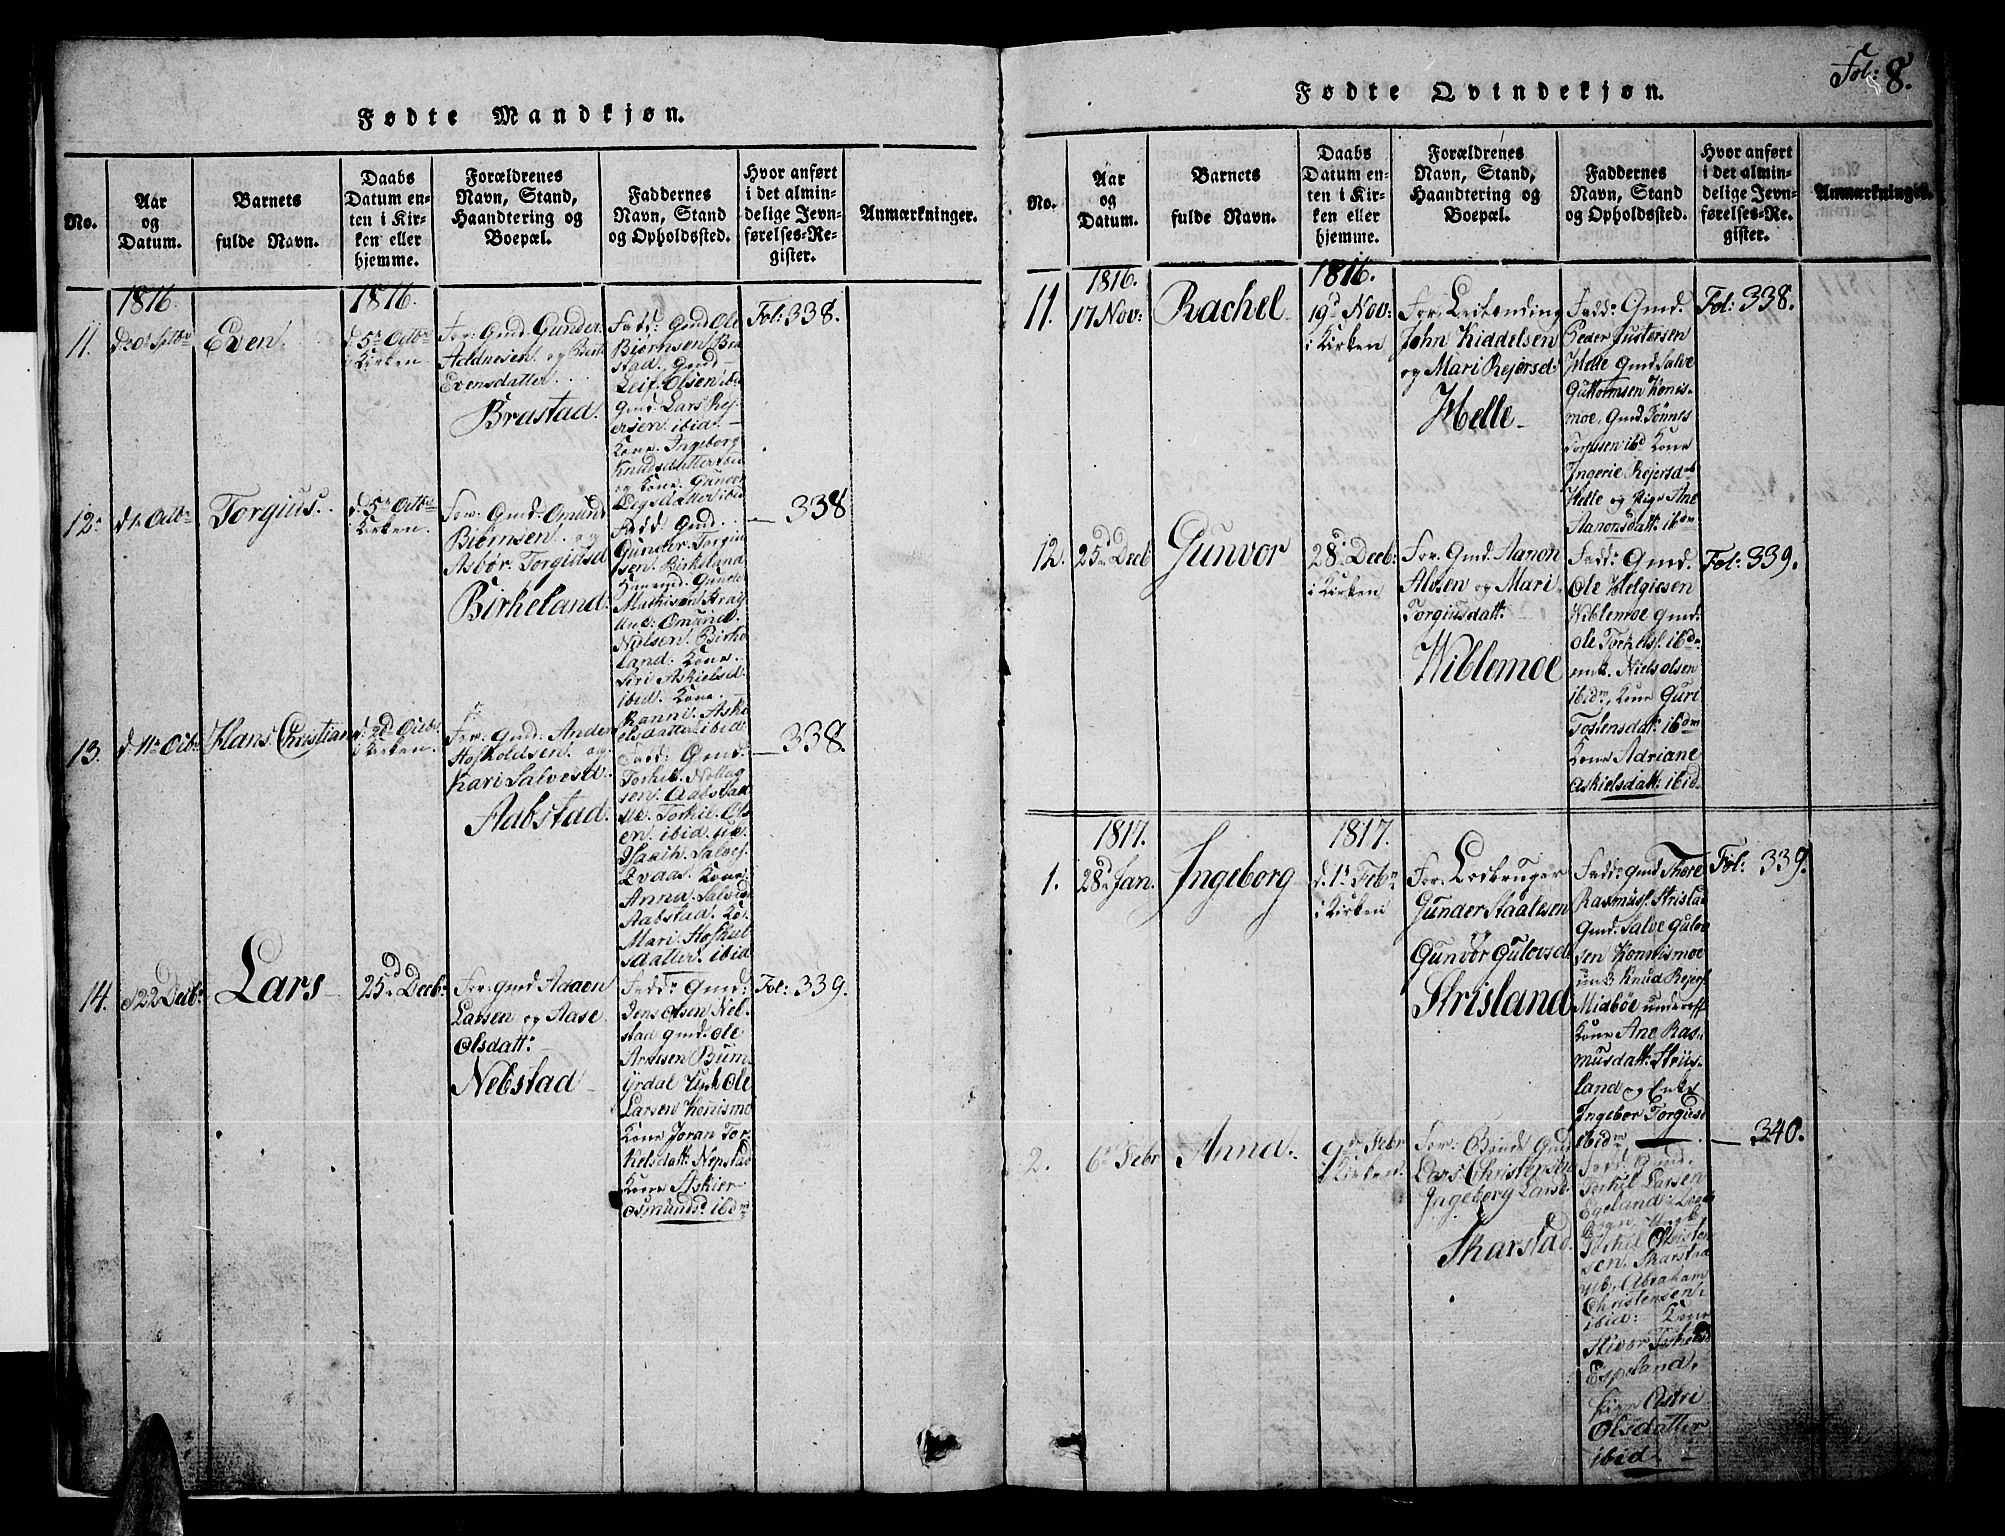 Fol: 8.
Fødte Mandkjøn.
No.
Aar
og
Datum.
Barnets
fulde Navn.
Daabs
Datum en-
ten i Kir-
ken eller
hjemme.
Forældrenes
Navn, Stand,
Haandtering og
Boepæl.
Faddernes
Navn, Stand
og Opholdssted.
Hvor anført
i det almin-
delige Jevn-
førelses-Re-
gister.
Anmærkninger.
1816.
1816.
11.
Even.
d. 5te Octbr
i Kirken
For: Gmd: Gunder
Adnesen og
Evensdatter
Brastad.
Fadd: Gmd Ole
Biørnsen Bra
stad. Gmd
Leif Olsen ibid
Gmd: Lars Rej-
ersen. ibid. -
Kone Ingeborg
Knudsdatter ibid
og Kone. Gunvor
ibid
Fol: 338.
12.
d 1. Octbr
Torgius.
d. 5te Octbr
i Kirken.
For: Gmd: Omund
Biørnsen. og
Asbør Torgiusd
Birkeland.
Fadd: Gmd.
Gunder Torgiu
sen. Birkeland
Gunder
Mathisen
Omund
Nilsen. Birke
land. Kone.
Siri Askielsd.
ibid. Kone.
Ranni. Aski
elsdatter ibid
- 338
13.
d. 11te Octbr
Hans Christian
i Kirken.
For: Gmd: Anders
Hofholdsen. og
Kari Salvesd.
Aabstad.
Fadd: Gmd:
Torkil
sen: Aabstad
Torkil. Ols
en. ibid.
Isaach. Salves.
Qvaas. Kone.
Anna Salvesd
Aabstad.
Mari
sdatter. ibid
- 338.
14.
d 22 Decbr
Lars
25de Decbr
For: Gmd Adaen
Larsen og Aase
Olsdatt:
Nebstad
Fadd: Gmd:
Jens Olsen Neb
stad gmd: Ole
Arnesen
yrdal Ole
Larsen Konnismo
Kone Joran Tor-
kelsdatt: Nepstad
Kone Askier
Osmunds: ibdm
Fol: 339.
Fødte Qvindekjøn.
No.
Aar
og
Datum.
Barnets
fulde Navn.
Daabs
Datum en-
ten i Kir-
ken eller
hjemme.
Forældrenes
Navn, Stand,
Haandtering og
Boepæl.
Faddernes
Navn, Stand
og Opholdssted.
Hvor anført
i det almin-
delige Jevn-
førelses-Re-
gister.
Anmærkninger.
1816.
1816.
11.
17 Nov:
Rachel
19d Nov:
i Kirken
For: Leilending
John Kiddelsen
og Mari Rejersd:
Helle
Fadd: Gmd.
Peder Justersen
Helle Gmd Salve
Guttormsen Konnis-
moe. Gmd. Tønnes
ibd Kone
Ingerie Rejersdt
Helle og Pige Ane
Aanonsdatt: ibdm
Fol: 338.
12.
25de Decb
Gunvor
28de Decb:
i Kirken
For: Gmd: Aanon
Alvsen og Mari
Torgiusdatt:
Wiblemoe
Fadd: Gmd:
Ole Helgiesen
Wiblemoe gmd:
Ole Torkels: ibdm
Niels Olsen
ibidm, Kone Guri
Tostensdat: ibdm
Kone Adriane
Askielsdatt: ibid
Fol: 339.
1817.
1817.
1.
28de Jan.
Ingeborg
d. 1te Febr
i Kirken
For: Lodbruger
Gunder Staalesen
Gunvor Gulovsd
Strisland
Fadd: gmd Thore
Rasmuss: Strislan
Gmd: Salve Gulov
sen Konnismoe
Knud Rejers
Midbøe underoff
Kone Ane Ras-
musdatt: Striis-
land og Enke
Ingebor Torgiusd
ibidm
Fol: 339.
2.
6te Febr
Anna.
9de Febr
i Kirken.
For: Bonde Gmd
Lars Christensen
Ingeborg Larsd.
Skarstad.
Fadd: Gmd.
Torkil Larsen
Egeland:
Sogn. Ungk
Torkel Christen
sen. Skarstad
Abraham
Christensen.
ibid: Kone
Espeland.
Pige Astri
Olsdatter
ibid.
- 340.